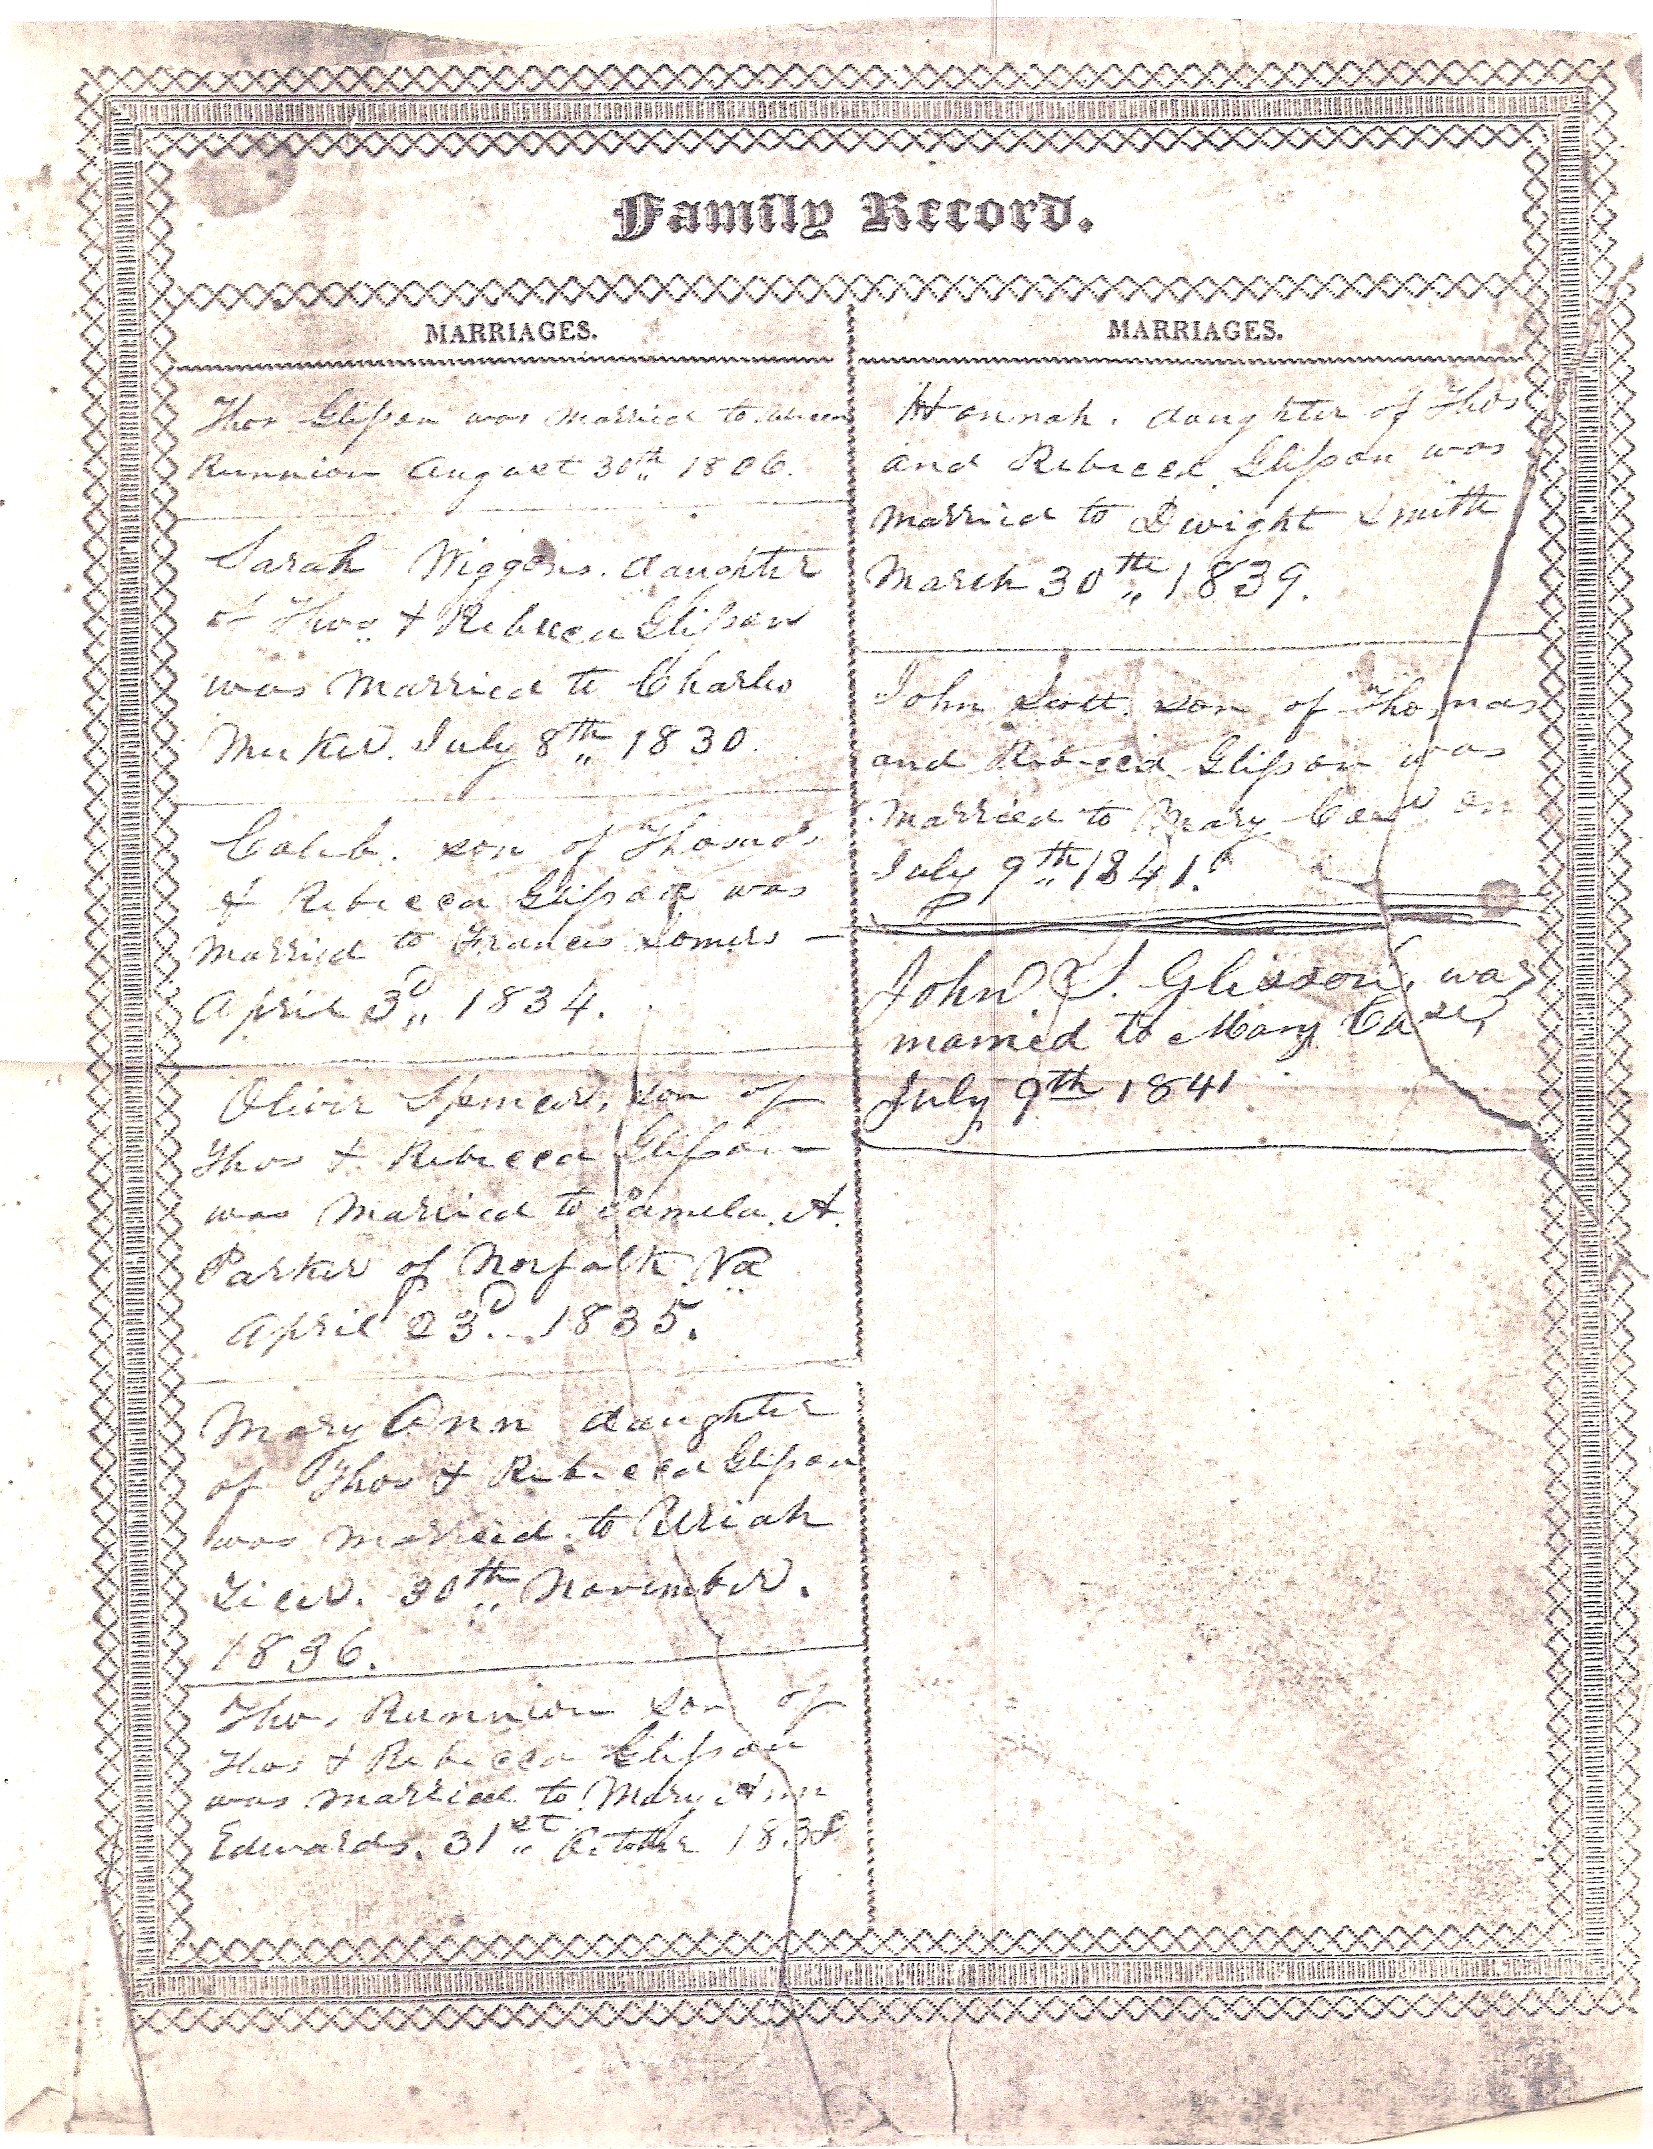 Family Record.
MARRIAGES.
Thos Glisson was Married to
Runnion August 30th 1806.
Sarah Wiggins. daughter
of Thos & Rebecca Glisson
was Married to Charles
Meeker. July 8th 1830.
Caleb. son of Thomas
& Rebecca Glisson was
Married to Frances Somers —
April 3d 1834.
Oliver Spencer, son of
Thos & Rebecca Glisson —
was Married to Pamela. A.
Parker of Norfolk Va
April 23d. 1835.
Mary Ann daughter
of Thos & Rebecca Glisson
was married. to Uriah
30th November.
1836.
Tho. Runnion son of
Thos & Rebecca Glisson
was married to Mary Ann
Edwards. 31st October 1838
MARRIAGES.
Hannah. daughter of Thos
and Rebecca Glisson was
Married to Dwight Smith
March 30th 1839.
John Scott. son of Thomas
and Rebecca Glisson was
Married to Mary on
July 9th 1841.
John S. Glisson, was
married to Mary Case,
July 9th 1841